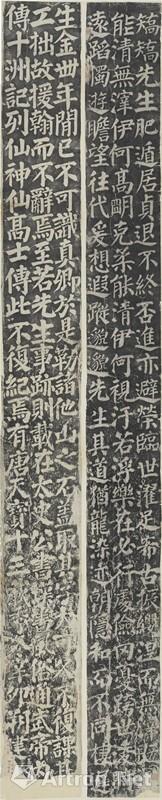 矯矯先生肥遁居貞退不終否進亦避榮臨世濯足希古振纓涅而無滓既濁
能清無滓伊何高明克柔能清伊何視汙若浮樂在必行處儉罔憂跨世凌時
遠蹈獨遊瞻望往代爰想遐蹤邈邈先生其道猶龍染跡朝隱和而不同棲
生金卌年間已不可識真卿於是勒諸他山之石蓋取其字大可久不復課其
工拙故援翰而不辭焉至若先生事跡則載在太史公書漢書風俗通武帝內
傳十洲記列仙神仙高士傳此不復紀焉有唐天寶十三建
Artron.Net